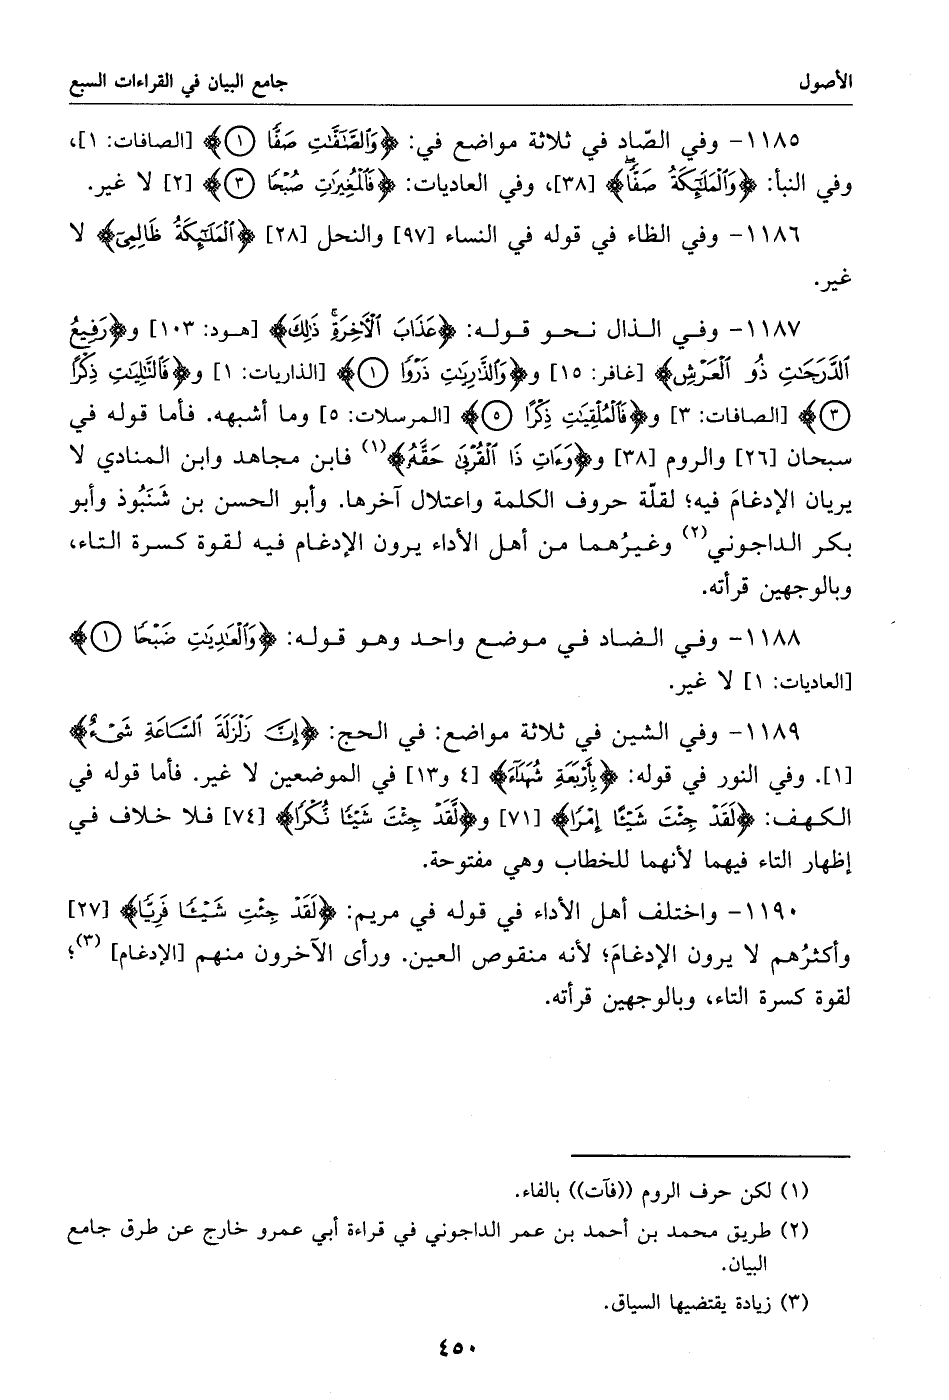 الأصول
جامع البيان في القراءات السبع
١١٨٥- وفي الصّاد في ثلاثة مواضع في: ﴿وَٱلصَّٰٓفَّٰتِ صَفّٗا ١﴾ [الصافات: ١]،
وفي النبأ: ﴿وَٱلۡمَلَٰٓئِكَةُ صَفّٗاۖ﴾ [٣٨]، وفي العاديات: ﴿فَٱلۡمُغِيرَٰتِ صُبۡحٗا ٣﴾ [٢] لا غير.
١١٨٦- وفي الظاء في قوله في النساء [٩٧] والنحل [٢٨] ﴿ٱلۡمَلَٰٓئِكَةُ ظَالِمِيٓ﴾ لا
غير.
١١٨٧- وفي الذال نحو قوله: ﴿عَذَابَ ٱلۡأٓخِرَةِۚ ذَٰلِكَ﴾ [هود: ١٠٣] و﴿رَفِيعُ
ٱلدَّرَجَٰتِ ذُو ٱلۡعَرۡشِ﴾ [غافر: ١٥] و﴿وَٱلذَّٰرِيَٰتِ ذَرۡوٗا ١﴾ [الذاريات: ١] و﴿فَٱلتَّٰلِيَٰتِ ذِكۡرًا
٣﴾ [الصافات: ٣] و﴿فَٱلۡمُلۡقِيَٰتِ ذِكۡرًا ٥﴾ [المرسلات: ٥] وما أشبهه. فأما قوله في
سبحان [٢٦] والروم [٣٨] و﴿وَءَاتِ ذَا ٱلۡقُرۡبَىٰ حَقَّهُۥ﴾(١) فابن مجاهد وابن المنادي لا
يريان الإدغامَ فيه؛ لقلّة حروف الكلمة واعتلال آخرها. وأبو الحسن بن شَنَبُوذ وأبو
بكر الداجوني(٢) وغيرُهما من أهل الأداء يرون الإدغام فيه لقوة كسرة التاء،
وبالوجهين قرأته.
١١٨٨- وفي الضاد في موضع واحد وهو قوله: ﴿وَٱلۡعَٰدِيَٰتِ ضَبۡحٗا ١﴾
[العاديات: ١] لا غير.
١١٨٩- وفي الشين في ثلاثة مواضع: في الحج: ﴿إِنَّ زَلۡزَلَةَ ٱلسَّاعَةِ شَيۡءٌ﴾
[١]. وفي النور في قوله: ﴿بِأَرۡبَعَةِ شُهَدَآءَ﴾ [٤ و١٣] في الموضعين لا غير. فأما قوله في
الكهف: ﴿لَقَدۡ جِئۡتَ شَيۡـًٔا إِمۡرٗا﴾ [٧١] و﴿لَّقَدۡ جِئۡتَ شَيۡـٔٗا نُّكۡرٗا﴾ [٧٤] فلا خلاف في
إظهار التاء فيهما لأنهما للخطاب وهي مفتوحة.
١١٩٠- واختلف أهل الأداء في قوله في مريم: ﴿لَقَدۡ جِئۡتِ شَيۡـٔٗا فَرِيّٗا﴾ [٢٧]
وأكثرُهم لا يرون الإدغامَ؛ لأنه منقوص العين. ورأى الآخرون منهم [الإدغام](٣)؛
لقوة كسرة التاء، وبالوجهين قرأته.
(١) لكن حرف الروم ((فآت)) بالفاء.
(٢) طريق محمد بن أحمد بن عمر الداجوني في قراءة أبي عمرو خارج عن طرق جامع
البيان.
(٣) زيادة يقتضيها السياق.
٤٥٠